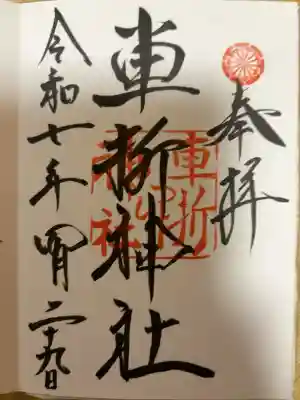 奉拝
車折神社
車折
神社
令和七年四月二十九日